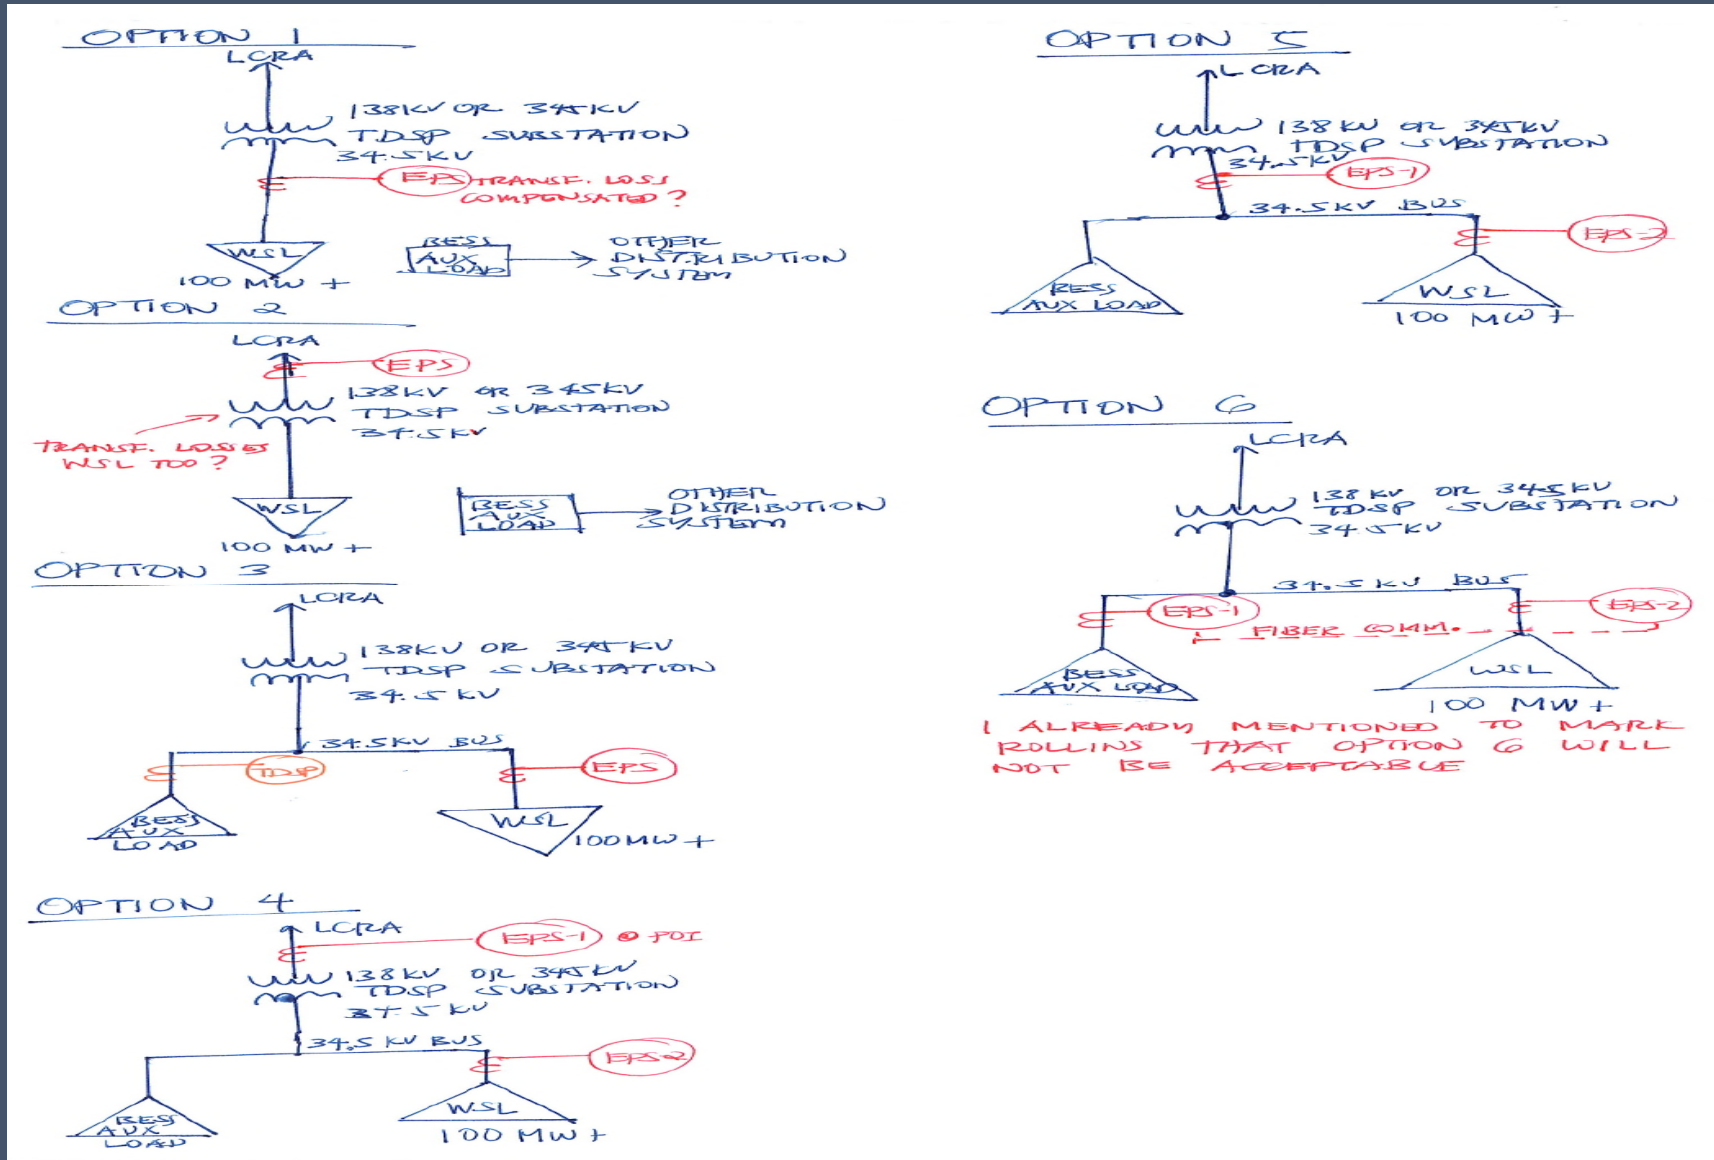 OPTION 1
LCRA
138KV OR 345KV
TDSP SUBSTATION
34.5KV
EPS TRANSF. LOSS
COMPENSATED?
WSL
100 MW +
BESS
AUX
LOAD
OTHER
DISTRIBUTION
SYSTEM
OPTION 2
LCRA
EPS
138KV OR 345KV
TDSP SUBSTATION
34.5KV
TRANSF. LOSSES
WSL TOO?
WSL
100 MW +
BESS
AUX
LOAD
OTHER
DISTRIBUTION
SYSTEM
OPTION 3
LCRA
138KV OR 345KV
TDSP SUBSTATION
34.5KV
34.5KV BUS
TDSP
EPS
BESS
AUX
LOAD
WSL
100MW +
OPTION 4
LCRA
EPS-1 @ POI
138KV OR 345KV
TDSP SUBSTATION
34.5KV
34.5 KV BUS
EPS-2
BESS
AUX
LOAD
WSL
100 MW +
OPTION 5
LCRA
138 KV OR 345KV
TDSP SUBSTATION
34.5KV
EPS-1
34.5KV BUS
EPS-2
BESS
AUX LOAD
WSL
100 MW +
OPTION 6
LCRA
138 KV OR 345KV
TDSP SUBSTATION
34.5KV
34.5 KV BUS
EPS-1
EPS-2
FIBER COMM.
BESS
AUX LOAD
WSL
100 MW +
I ALREADY MENTIONED TO MARK
ROLLINS THAT OPTION 6 WILL
NOT BE ACCEPTABLE